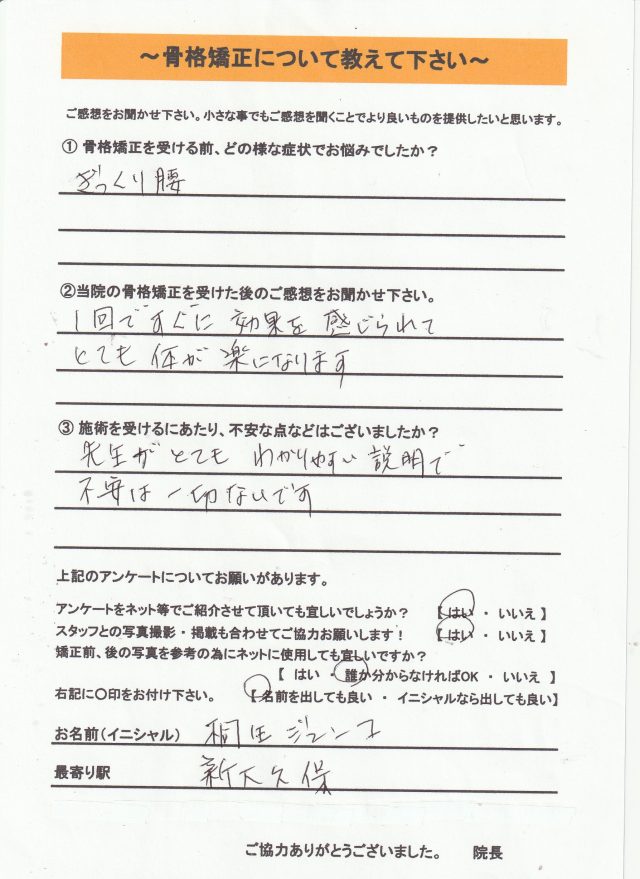 ～骨格矯正について教えて下さい～
ご感想をお聞かせ下さい。小さな事でもご感想を聞くことでより良いものを提供したいと思います。
① 骨格矯正を受ける前、どの様な症状でお悩みでしたか？
ぎっくり腰
②当院の骨格矯正を受けた後のご感想をお聞かせ下さい。
1回ですぐに効果を感じられて
とても体が楽になります
③ 施術を受けるにあたり、不安な点などはございましたか？
先生がとてもわかりやすい説明で
不安は一切ないです
上記のアンケートについてお願いがあります。
アンケートをネット等でご紹介させて頂いても宜しいでしょうか？ 【 はい ・ いいえ 】
スタッフとの写真撮影・掲載も合わせてご協力お願いします！ 【 はい ・ いいえ 】
矯正前、後の写真を参考の為にネットに使用しても宜しいですか？
【 はい ・ 誰か分からなければOK ・ いいえ 】
右記に〇印をお付け下さい。 【 名前を出しても良い ・ イニシャルなら出しても良い】
お名前（イニシャル） 桐生ジュンコ
最寄り駅 新大久保
ご協力ありがとうございました。 院長